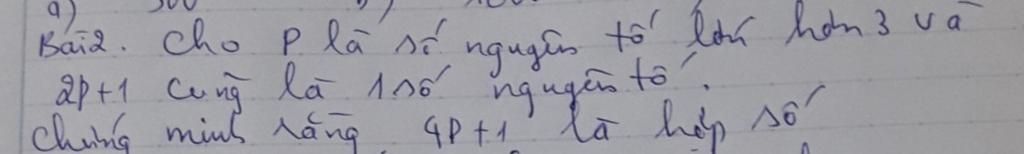 a)
Bài2. Cho P là số nguyên tố lớn hơn 3 và
2P+1 cũng là 1 số nguyên tố.
Chứng minh rằng 4P+1 là hợp số